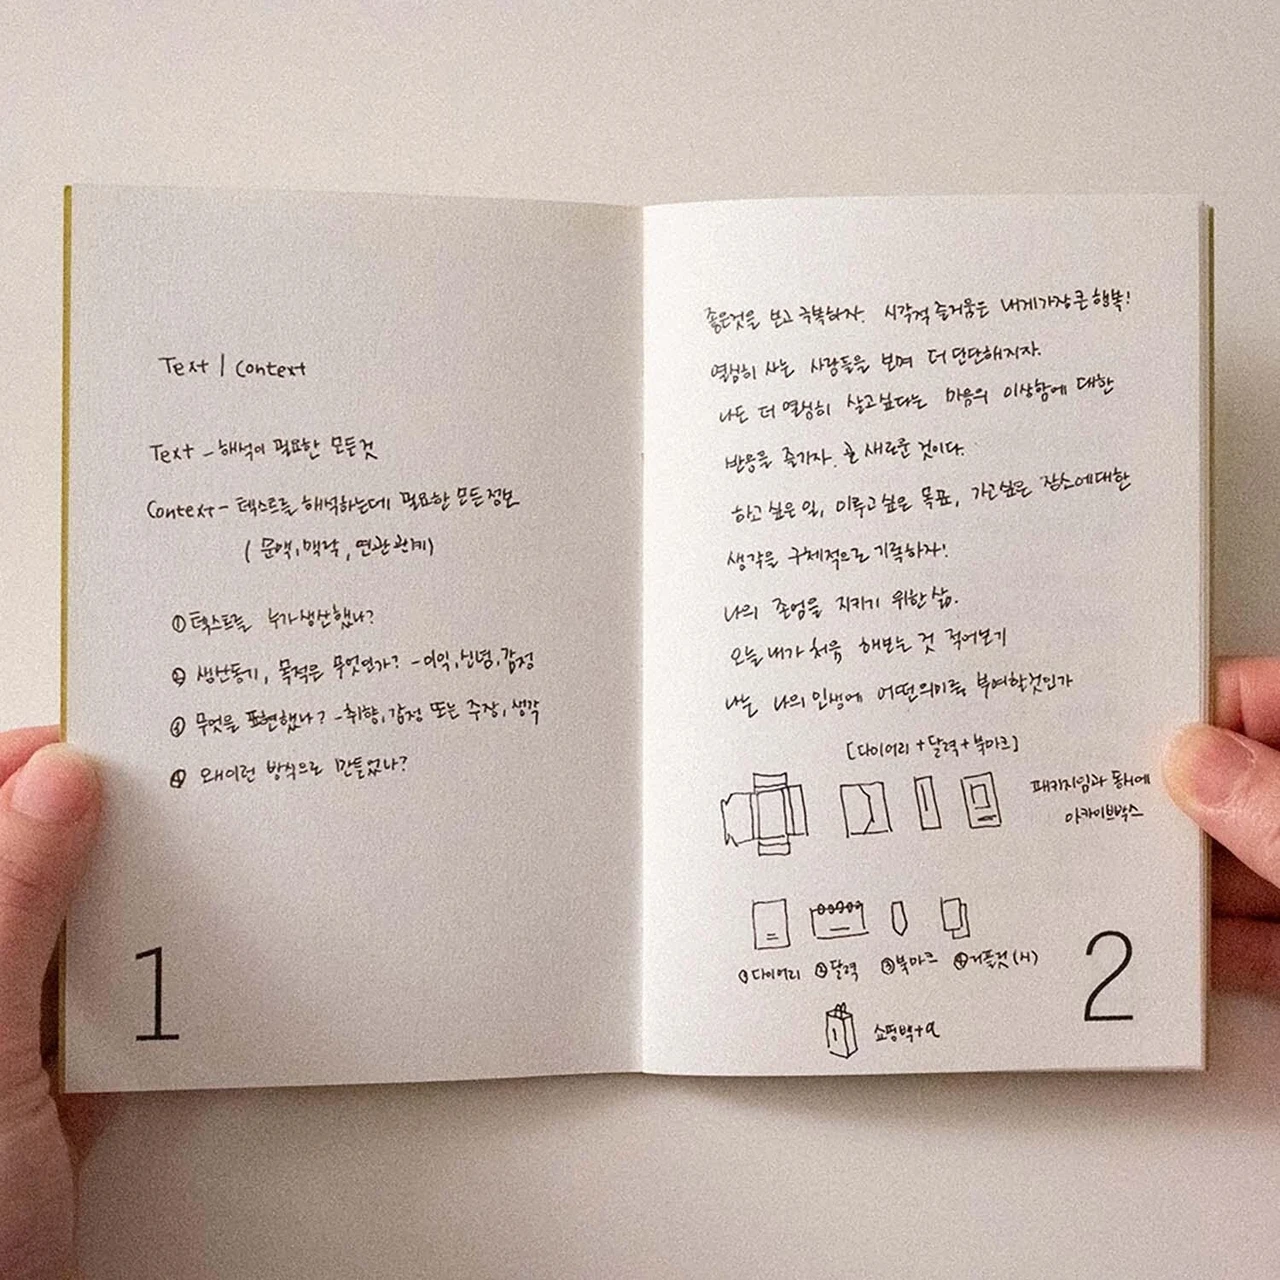 Text | Context
Text - 해석이 필요한 모든것
Context - 텍스트를 해석하는데 필요한 모든 정보
( 문맥, 맥락, 연관관계)
① 텍스트를 누가 생산했나?
② 생산동기, 목적은 무엇인가? - 이익, 신념, 감정
③ 무엇을 표현했나? - 취향, 감정 또는 주장, 생각
④ 왜 이런 방식으로 만들었나?
1
좋은것을 보고 극복하자. 시각적 즐거움은 내게 가장 큰 행복!
열심히 사는 사람들을 보며 더 단단해지자.
나도 더 열심히 살고싶다는 마음의 이상함에 대한
반응을 즐기자. 늘 새로운 것이다.
하고 싶은 일, 이루고 싶은 목표, 가고싶은 장소에 대한
생각을 구체적으로 기록하자!
나의 존엄을 지키기 위한 삶.
오늘 내가 처음 해보는 것 적어보기
나는 나의 인생에 어떤 의미를 부여할것인가
[다이어리 + 달력 + 북마크]
패키지임과 동시에
아카이브박스
① 다이어리 ② 달력 ③ 북마크 ④ 리플렛 (시)
쇼핑백 + α
2